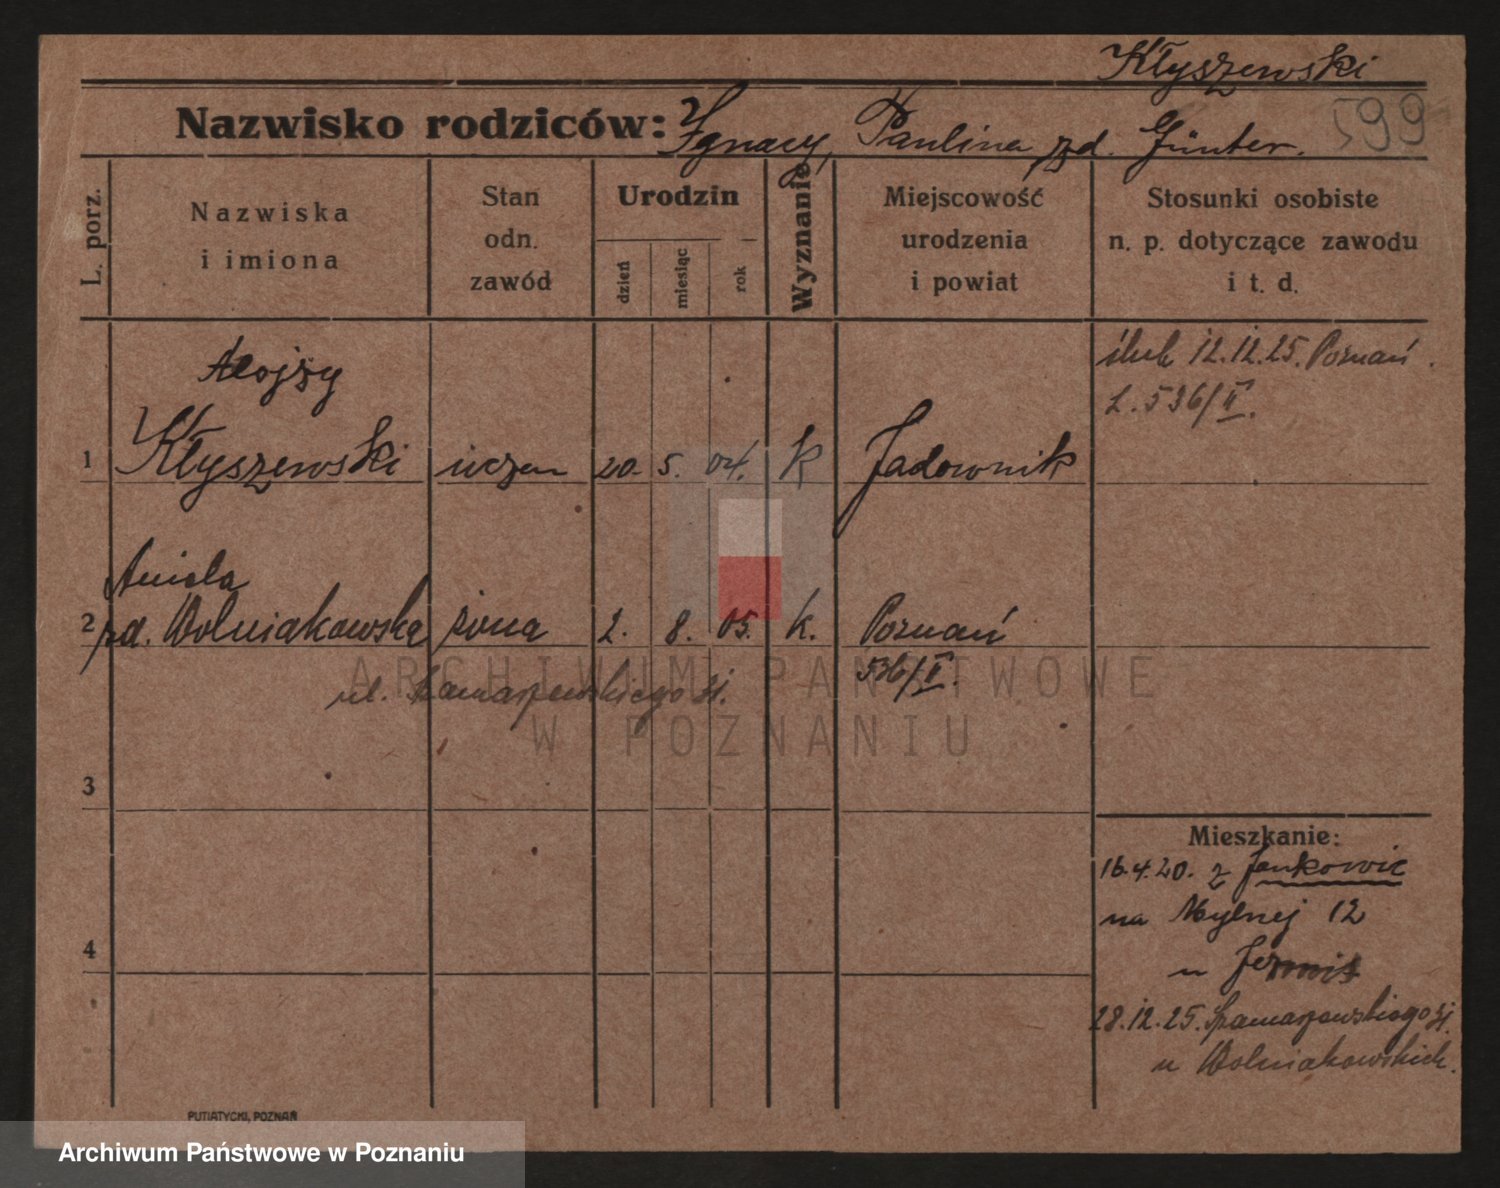 Kłyszewski
Nazwisko rodziców: Ignacy, Paulina zd. Günter.
599
L. porz.
Nazwiska
i imiona
Stan
odn.
zawód
Urodzin
dzień
miesiąc
rok
Wyznanie
Miejscowość
urodzenia
i powiat
Stosunki osobiste
n. p. dotyczące zawodu
i t. d.
ślub 12.12.25. Poznań.
L. 536/II.
Alojzy
1 Kłyszewski uczen 20. 5. 04. K Jadownik
Aniela
2 zd. Wolniakowska żona 2. 8. 05. k. Poznań
536/II.
ul.
3
4
Mieszkanie:
16.4.20. z Jankowic
na Mylnej 12
u
28.12.25.
u Wolniakowskich.
ARCHIWUM PAŃSTWOWE
W POZNANIU
PUTIATYCKI, POZNAŃ
Archiwum Państwowe w Poznaniu